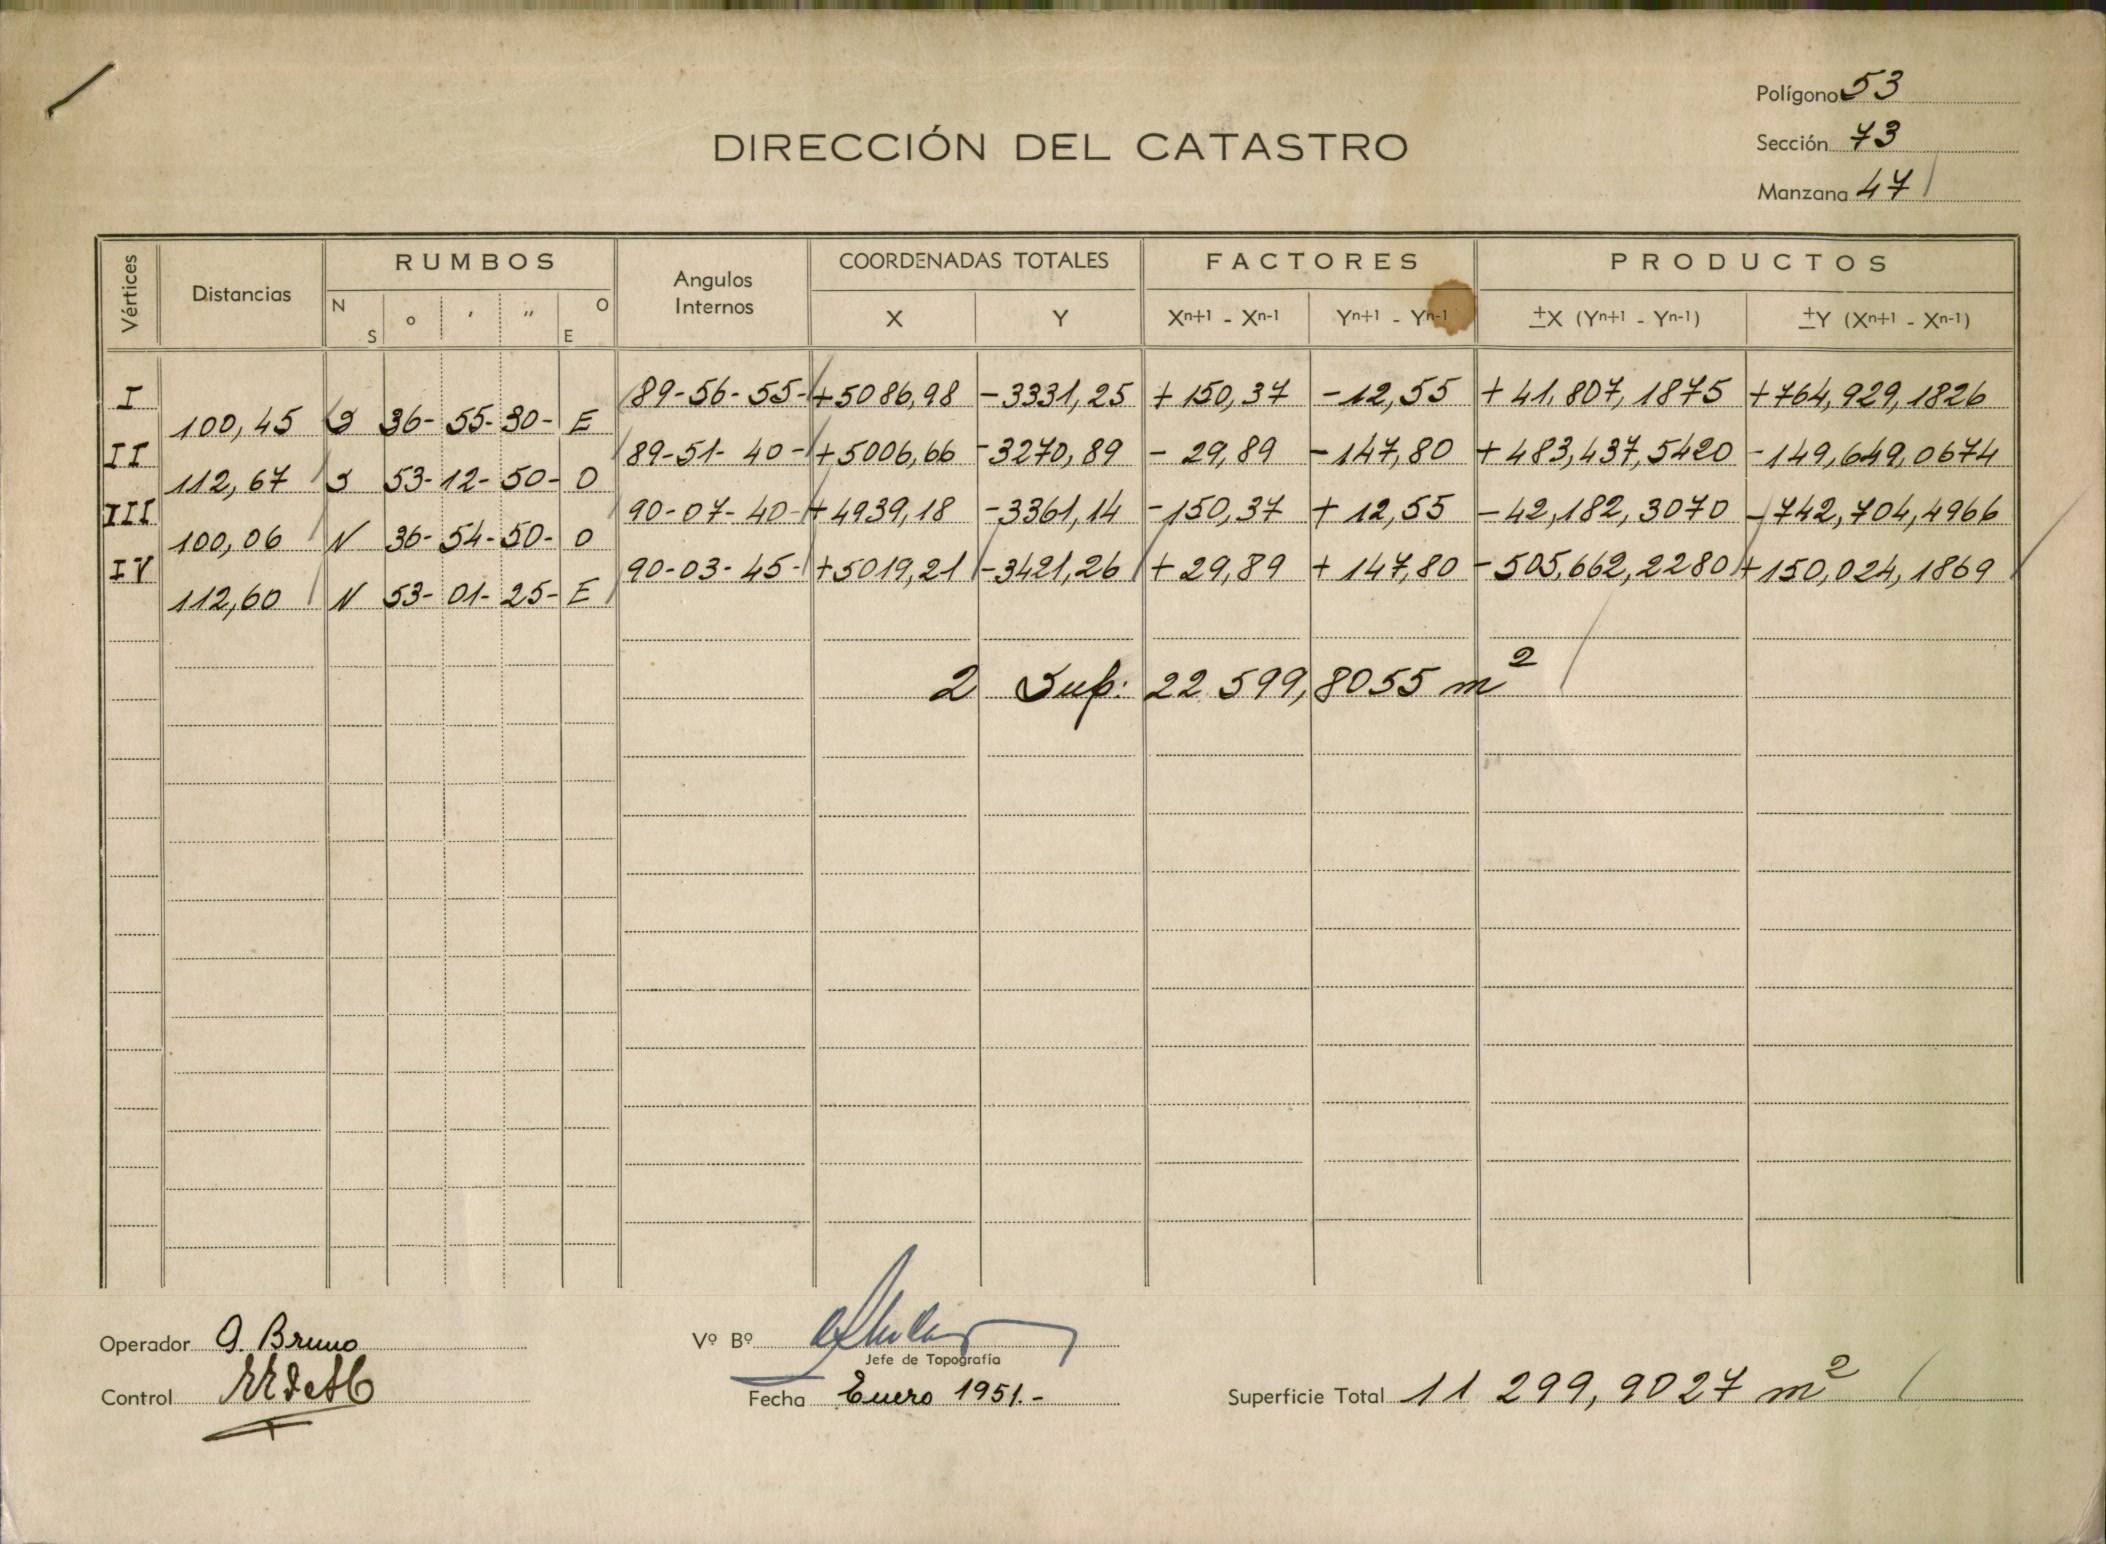 Polígono 53
DIRECCIÓN DEL CATASTRO
Sección 73
Manzana 47
Vértices Distancias RUMBOS Angulos Internos COORDENADAS TOTALES FACTORES PRODUCTOS
N S ° ' " O E X Y Xⁿ⁺¹ - Xⁿ⁻¹ Yⁿ⁺¹ - Yⁿ⁻¹ ±X (Yⁿ⁺¹ - Yⁿ⁻¹) ±Y (Xⁿ⁺¹ - Xⁿ⁻¹)
I 89-56-55- +5086,98 -3331,25 +150,37 -12,55 +41,807,1875 +764,929,1826
100,45 S 36- 55- 30- E
II 89-51-40- +5006,66 -3270,89 -29,89 -147,80 +483,437,5420 -149,649,0674
112,67 S 53- 12- 50- O
III 90-07-40- +4939,18 -3361,14 -150,37 +12,55 -42,182,3070 -742,704,4966
100,06 N 36- 54- 50- O
IV 90-03-45- +5019,21 -3421,26 +29,89 +147,80 -505,662,2280 +150,024,1869
112,60 N 53- 01- 25- E
2 Sup. 22 599,8055 m²
Operador G. Bruno Vº Bº
Jefe de Topografía
Control Fecha Enero 1951.- Superficie Total 11 299,9027 m²